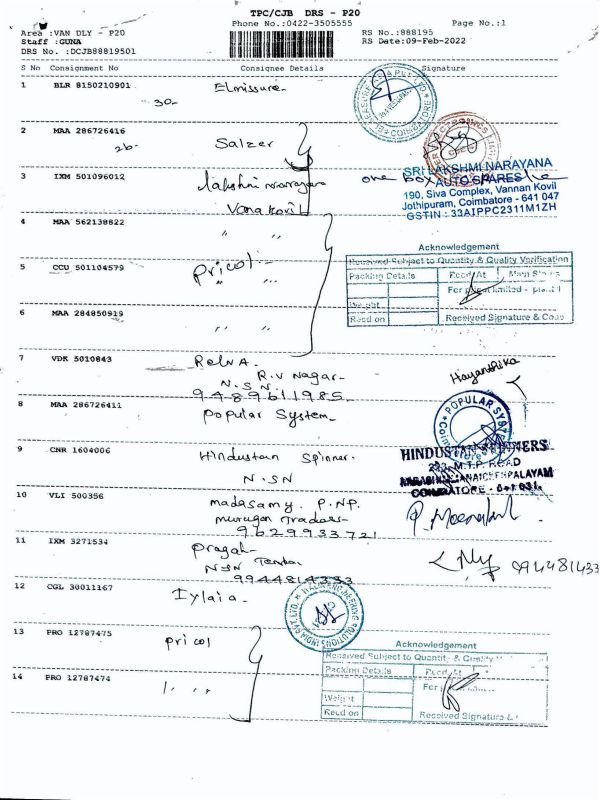 TPC/CJB DRS - P20
Phone No.:0422-3505555
Page No.:1
Area :VAN DLY - P20
Staff :GUNA
DRS No. :DCJB88819501
RS No.:888195
RS Date:09-Feb-2022
S No Consignment No Consignee Details Signature
1 BLR 8150210901 Elmissure
30-
2 MAA 286726416 Salzer
26-
3 IXM 501096012 lakshmi narayana
Vanakovil
one box
SRI LAKSHMI NARAYANA
AUTO SPARES
190, Siva Complex, Vannan Kovil
Jothipuram, Coimbatore - 641 047
GSTIN : 33AIPPC2311M1ZH
4 MAA 562138822 " "
5 CCU 501104579 pricol
" "
Acknowledgement
Received Subject to Quantity & Quality Verification
Packing Details Recd At Main Stores
For pricol limited - plant 1
Weight
Recd on Received Signature & Code
6 MAA 284850919 " "
7 VDK 5010843
R.V Nagar
N.S.N.
9489611985
8 MAA 286726411 Popular System
POPULAR SYST
9 CNR 1604006 Hindustan Spinner
N.SN
HINDUSTAN
M.T.P. ROAD
COIMBATORE - 641 031
10 VLI 500356 madasamy. P.NP.
murugan Traders
9629933721
11 IXM 3271534 pragat
N.SN
9944814333
994481433
12 CGL 30011167 Iylaia
13 PRO 12787475 pricol
14 PRO 12787474 " "
Acknowledgement
Received Subject to Quantity & Quality
Packing Details Recd At
For
Weight
Recd on Received Signature &